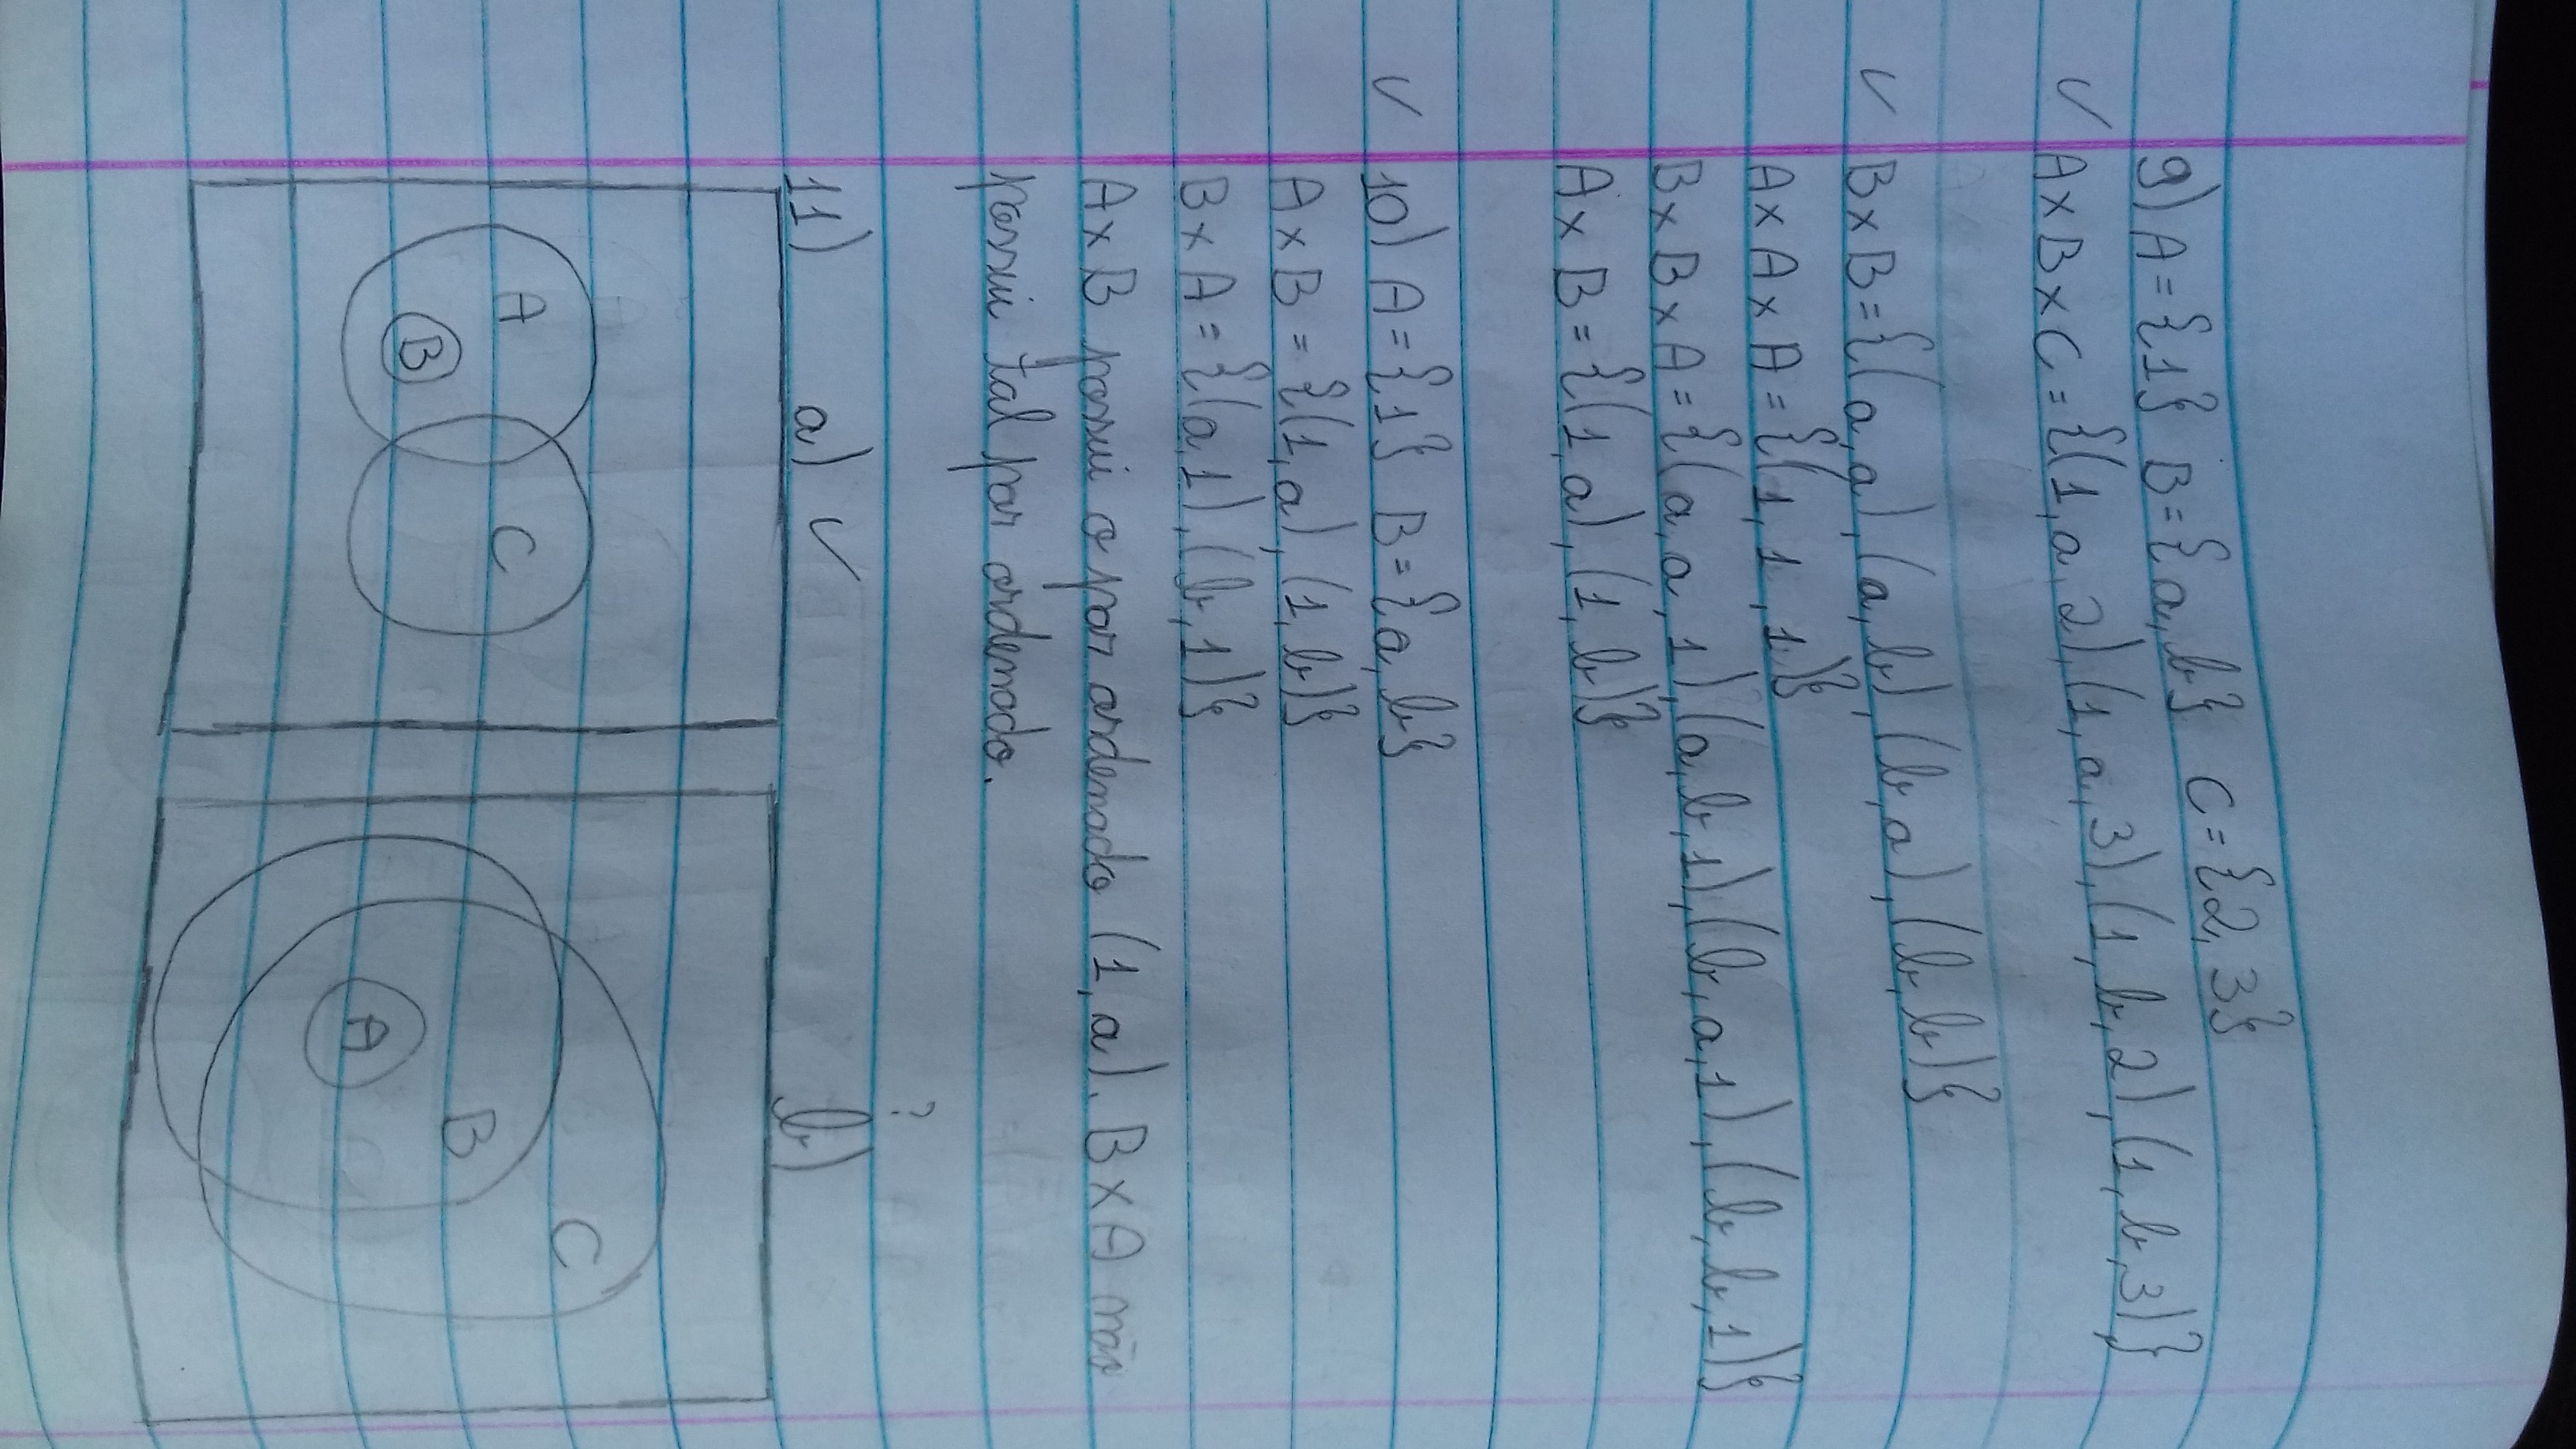 9) A = {1} B = {a, b} C = {2, 3}
✓ A x B x C = {(1, a, 2), (1, a, 3), (1, b, 2), (1, b, 3)}
✓ B x B = {(a, a), (a, b), (b, a), (b, b)}
A x A x A = {(1, 1, 1)}
B x B x A = {(a, a, 1), (a, b, 1), (b, a, 1), (b, b, 1)}
A x B = {(1, a), (1, b)}
✓ 10) A = {1} B = {a, b}
A x B = {(1, a), (1, b)}
B x A = {(a, 1), (b, 1)}
A x B possui o par ordenado (1, a). B x A não
possui tal par ordenado.
?
11) a) ✓ b)
A C
B
C
B
A